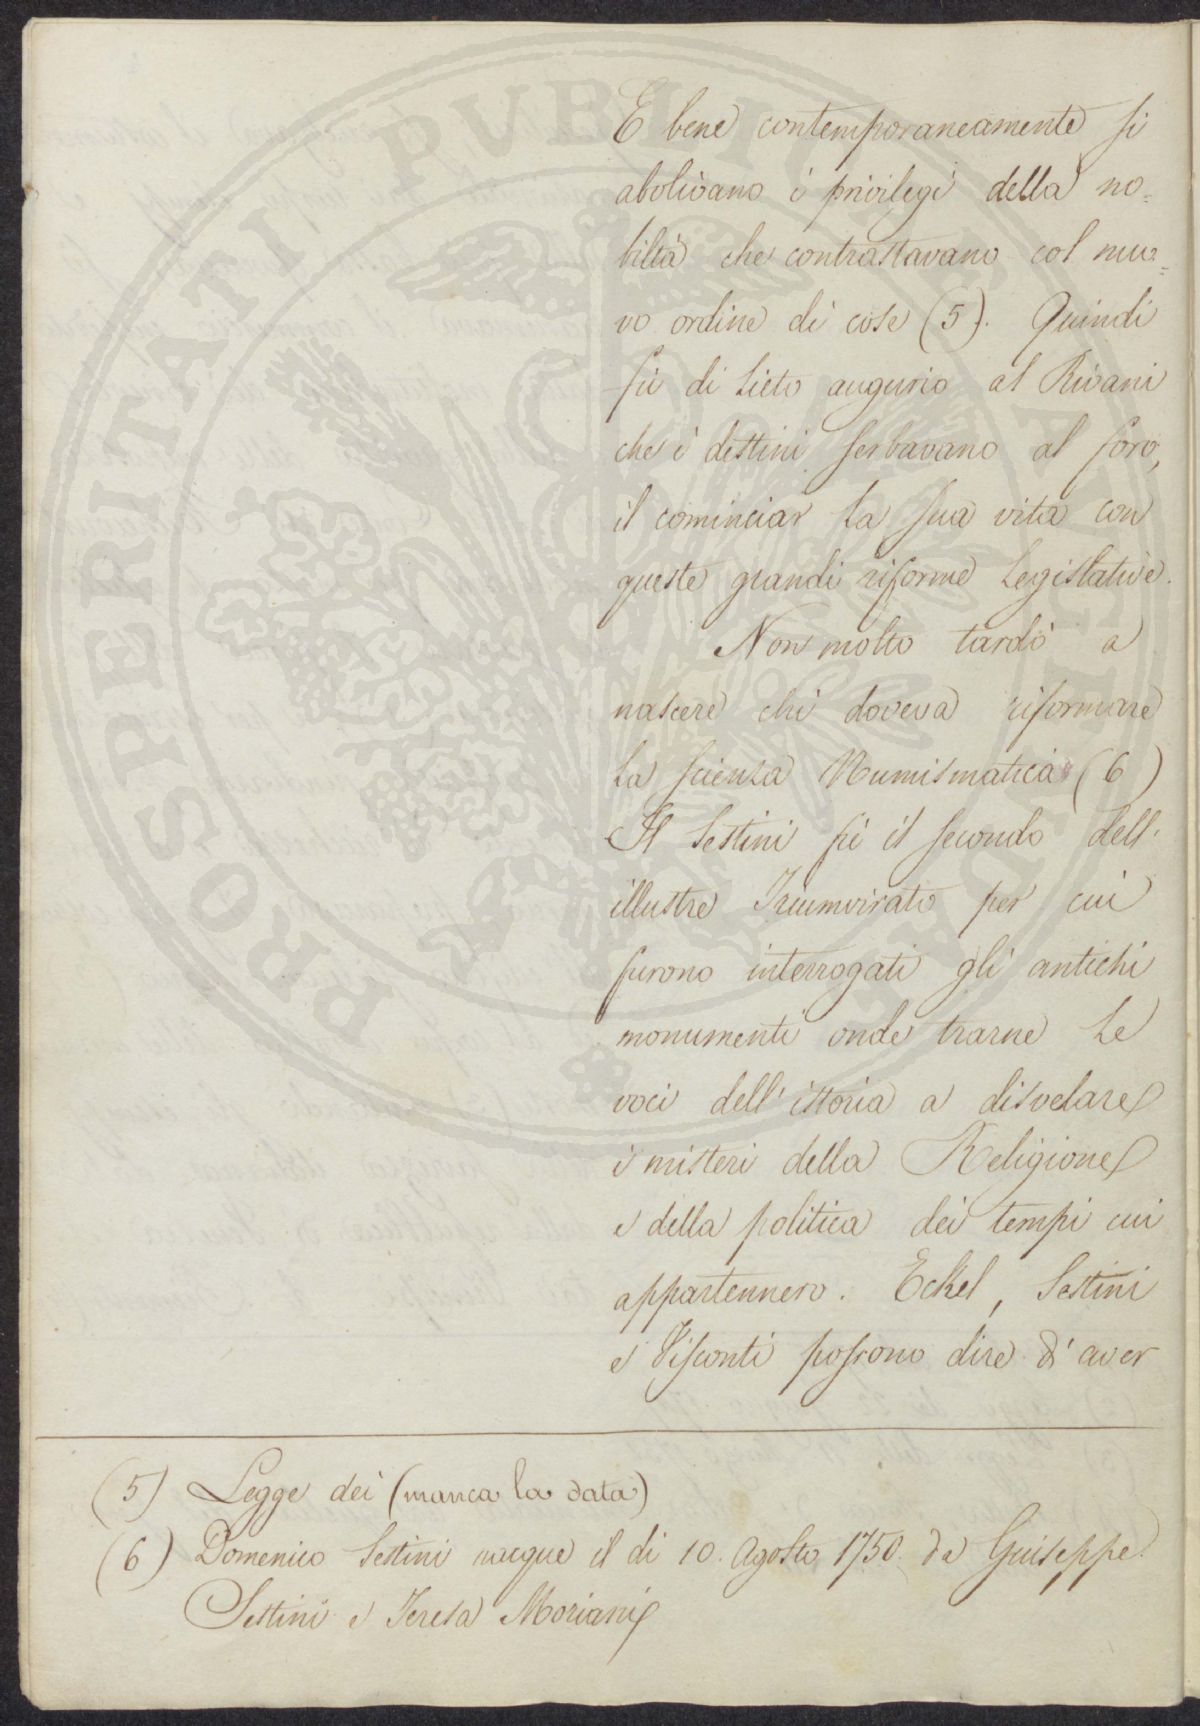 E bene contemporaneamente si
abolivano i privilegi della no=
biltà che contrastavano col nuo=
vo ordine di cose (5). Quindi
fù di lieto augurio al Rivani
che i destini serbavano al foro,
il cominciar la sua vita con
queste grandi riforme Legislative.
Non molto tardò a
nascere chi doveva riformare
la scienza Numismatica (6)
Il Sestini fù il secondo dell'
illustre Triumvirato per cui
furono interrogati gli antichi
monumenti onde trarne le
voci dell'istoria a disvelare
i misteri della Religione
e della politica dei tempi cui
appartennero. Eckel, Sestini
e Visconti possono dire d'aver
(5) Legge dei (manca la data)
(6) Domenico Sestini nacque il di 10. Agosto 1750. da Guiseppe
Sestini e Teresa Moriani
PROSPERITATI PVBLICAE AVGENDAE